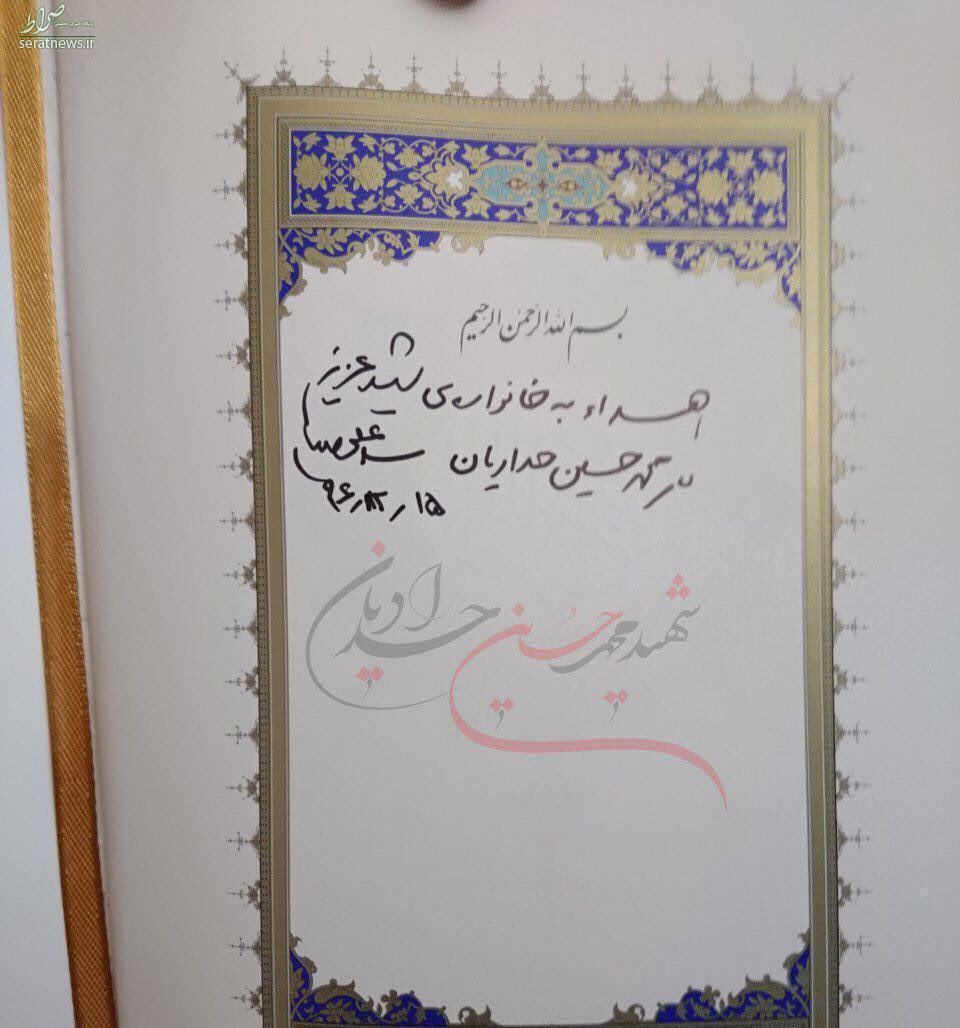 صراط
seratnews.ir
بسم الله الرحمن الرحیم
اهداء به خانواده‌ی شهید عزیز
محمد حسین حدادیان سید علی
۹۶٫۱۲٫۱۵
شهید محمد حسین حدادیان